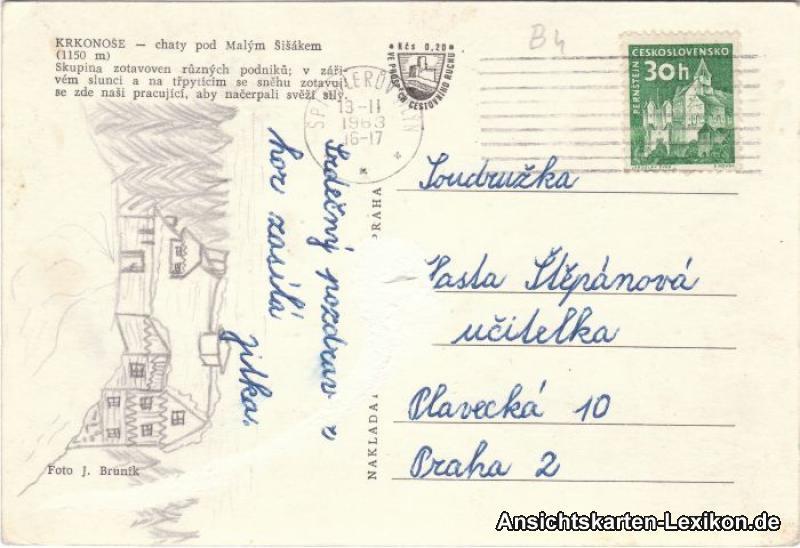 KRKONOŠE — chaty pod Malým Šišákem
(1150 m)
Skupina zotavoven různých podniků; v záři-
vém slunci a na třpytícím se sněhu zotavují
se zde naši pracující, aby načerpali svěží síly.
Kčs 0,20
VE PROSPĚCH CESTOVNÍHO RUCHU
13-11
1963
16-17
B4
ČESKOSLOVENSKO
30h
PERNŠTEJN
Srdečný pozdrav z
hor zasílá
Jitka.
Soudružka
Vasta Štěpánová
učitelka
Plavecká 10
Praha 2
PRAHA
Foto J. Bruník
Ansichtskarten-Lexikon.de